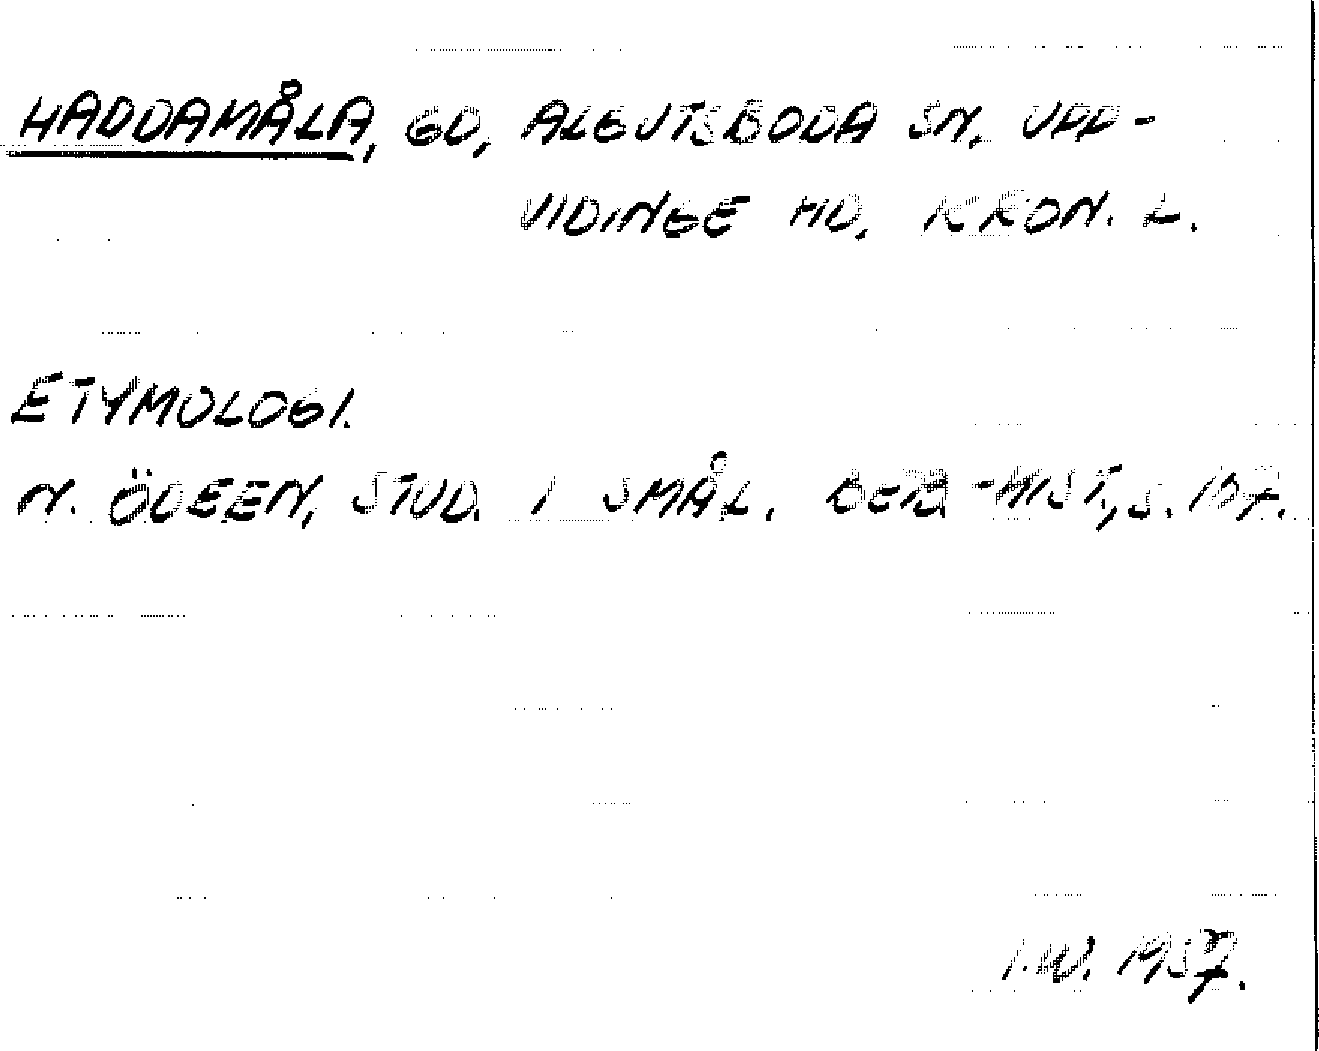 HADDAMÅLA, GD, ALGUTSBODA SN, UPP-
VIDINGE HD, KRON. L.
ETYMOLOGI.
N. ÖDEEN, STUD. I SMÅL. BEB-HIST, S. 157.
I.W. 1957.